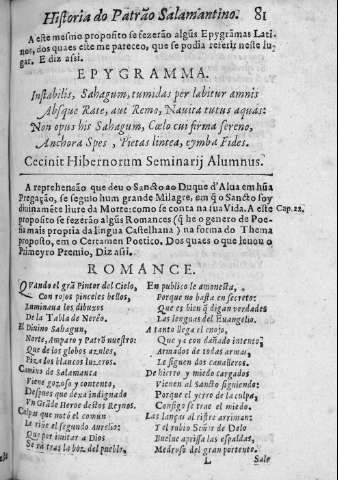 Historia do Patrão Salamantino. 81
A este mesmo proposito se fezerão algũs Epygrãmas Lati-
nos, dos quaes este me pareceo, que se podia referir neste lu-
gar. E diz assi.
EPYGRAMMA.
Instabilis, Sahagum, tumidas per labitur amnis
Absque Rate, aut Remo, Navita tutus aquas:
Non opus his Sahagum, Cœlo cui firma sereno,
Anchora Spes, Pietas lintea, cymba Fides.
Cecinit Hibernorum Seminarij Alumnus.
A reprehensão que deu o Sancto ao Duque d'Alua em hũa
Pregação, se seguio hum grande Milagre, em q̃ o Sancto foy
diuinamẽte liure da Morte: como se conta na sua Vida. A este
Cap. 22.
proposito se fezerão algũs Romances (q̃ he o genero de Poe-
sia mais propria da lingua Castelhana) na forma do Thema
proposto, em o Certamen Poetico. Dos quaes o que leuou o
Primeyro Premio, Diz assi.
ROMANCE.
QVando el grã Pintor del Cielo,
Con rojos pinceles bellos,
Luminaua los dibuxos
De la Tabla de Nereo.
El Diuino Sahagun,
Norte, Amparo y Patrõ nuestro:
Que de los globos azules,
Piza los blancos luzeros.
Camino de Salamanca
Viene gozoso y contento,
Despues que dexa indignado
Vn Grãde Heroe destos Reynos.
Culpas que notò el comun
Le riñe el segundo Aurelio:
Que por imitar a Dios
Se va tras la boz del pueblo,
En publico le amonesta,
Porque no basta en secreto:
Que es bien q̃ digan verdades
Las lenguas del Euangelio.
A tanto llega el enojo,
Que ya con dañado intento
Armados de todas armas,
Le siguen dos caualleros.
De hierro y miedo cargados
Vienen al Sancto siguiendo:
Porque el yerro de la culpa,
Consigo se trae el miedo.
Las lanças al ristre arriman:
Y el rubio Señor de Delo
Buelue aprissa las espaldas,
Medroso del gran portento.
L
Sale